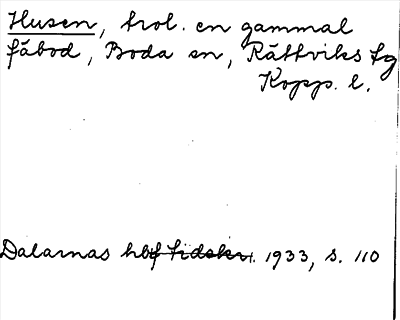 Husen, trol. en gammal
fäbod, Boda sn, Rättviks tg
Kopp. l.
Dalarnas hbf tidskr. 1933, s. 110